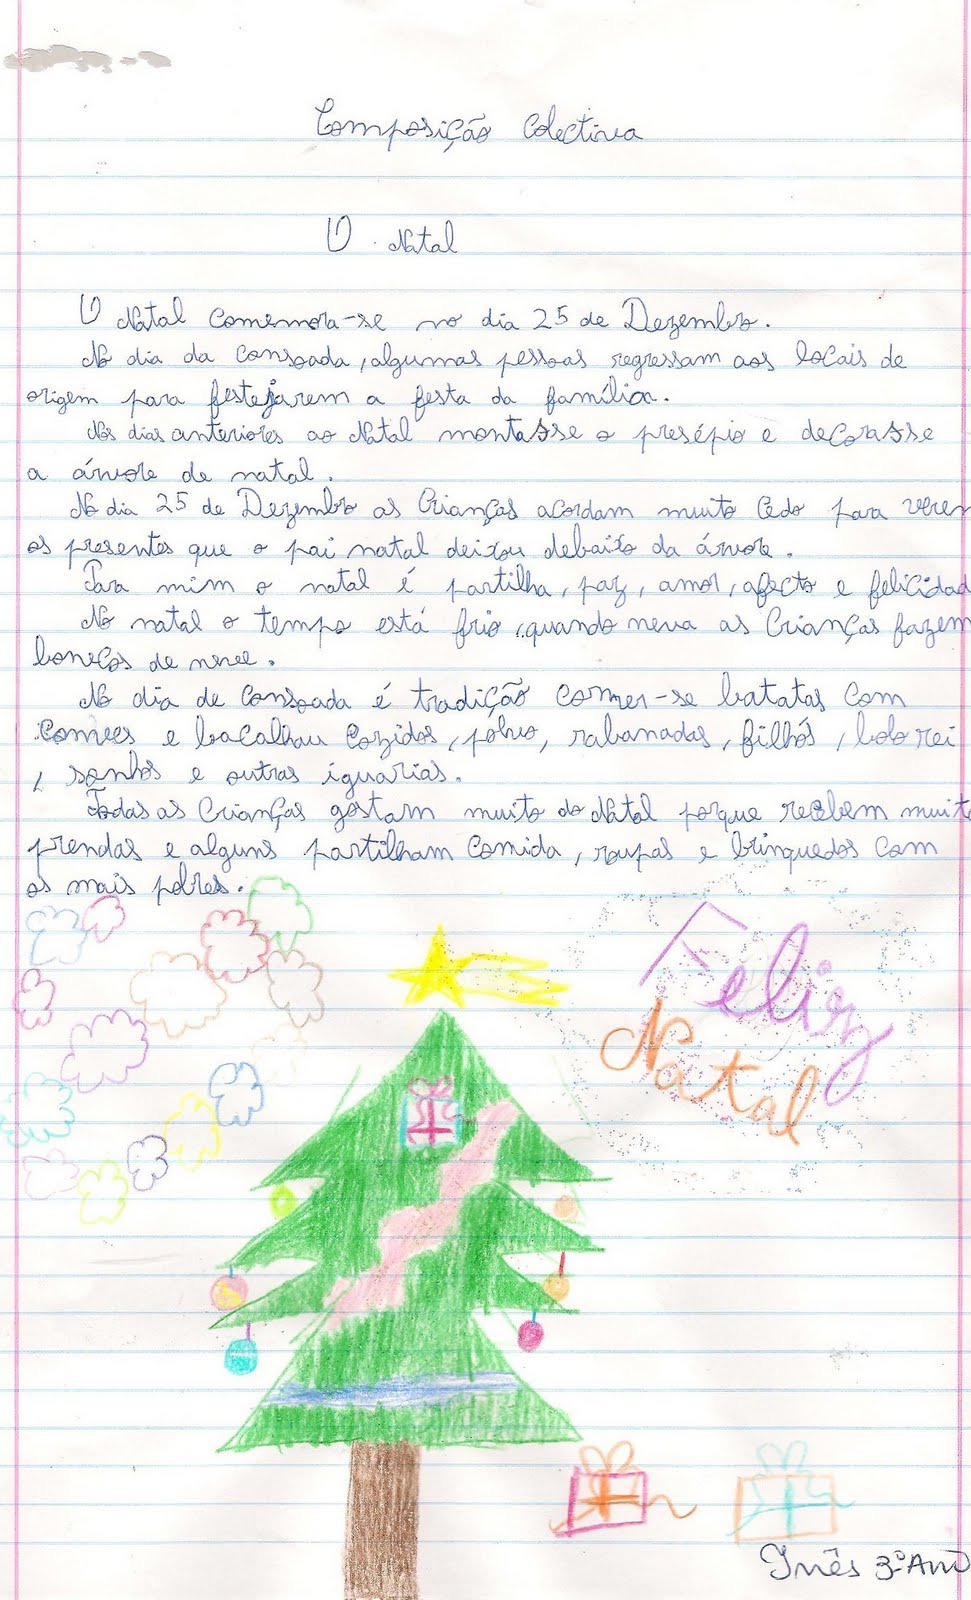 Composição Colectiva
O Natal
O Natal comemora-se no dia 25 de Dezembro.
No dia da consoada, algumas pessoas regressam aos locais de
origem para festejarem a festa da família.
Nos dias anteriores ao Natal montasse o presépio e decorasse
a árvore de natal.
No dia 25 de Dezembro as Crianças acordam muito cedo para verem
os presentes que o pai natal deixou debaixo da árvore.
Para mim o natal é partilha, paz, amor, afecto e felicidad
No natal o tempo está frio, quando neva as Crianças fazem
bonecos de neve.
No dia de consoada é tradição comer-se batatas com
couves e bacalhau cozidos, polvo, rabanadas, filhós, bolo rei
, sonhos e outras iguarias.
Todas as Crianças gostam muito do Natal porque recebem muit
prendas e alguns partilham comida, roupas e brinquedos com
os mais pobres.
Feliz
Natal
Inês 3ºAno